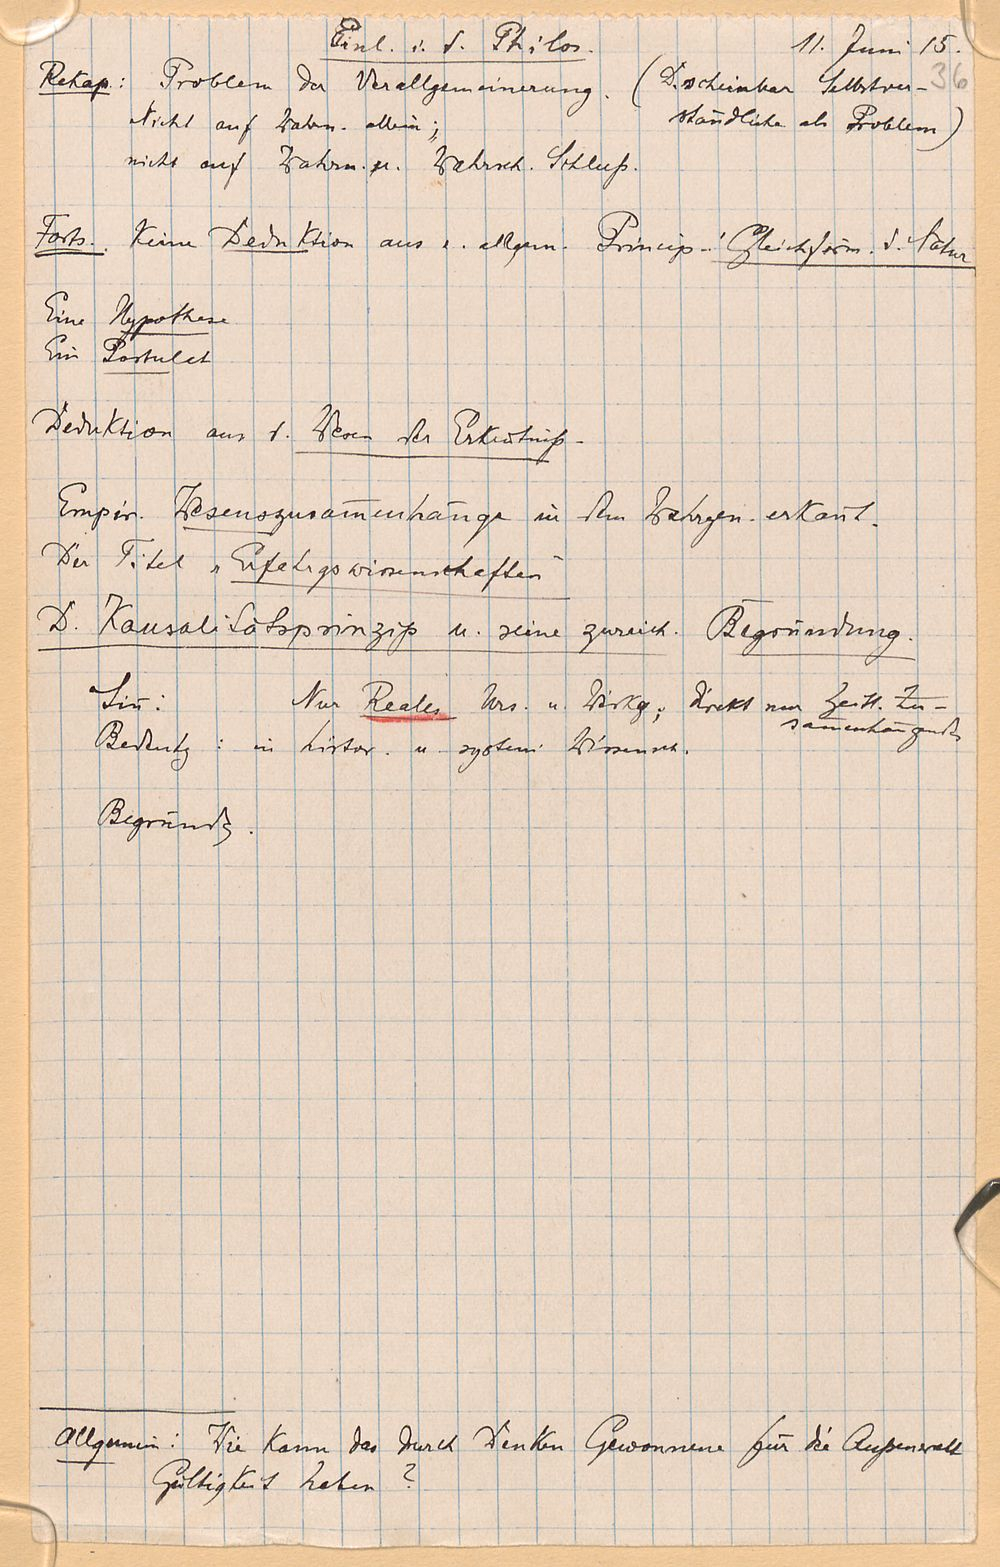 Einl. i. d. Philos. 11. Juni 15.
36
Rekap.: Problem der Verallgemeinerung. (D. scheinbar Selbstver-
ständliche als Problem)
Nicht auf Wahrn. allein;
nicht auf Wahrn. u. Wahrsch. Schluß.
Forts. Keine Deduktion aus e. allgem. Princip: Gleichförm. d. Natur
Eine Hypothese
Ein Postulat
Deduktion aus d. Wesen der Erkentniß.
Empir. Wesenszusamenhänge in dem Wahrgen. erkant.
Der Titel „Erfahrgswissenschaften"
D. Kausalitätsprinzip u. seine zureich. Begründung.
Sin: Nur Reales Urs. u. Wirkg; direkt nur zeitl. Zu-
samenhängendes
Bedeutg: in histor. u. system. Wissensch.
Begründg.
Allgemein: Wie kann das durch Denken Gewonnene für die Außenwelt
Gültigkeit haben?